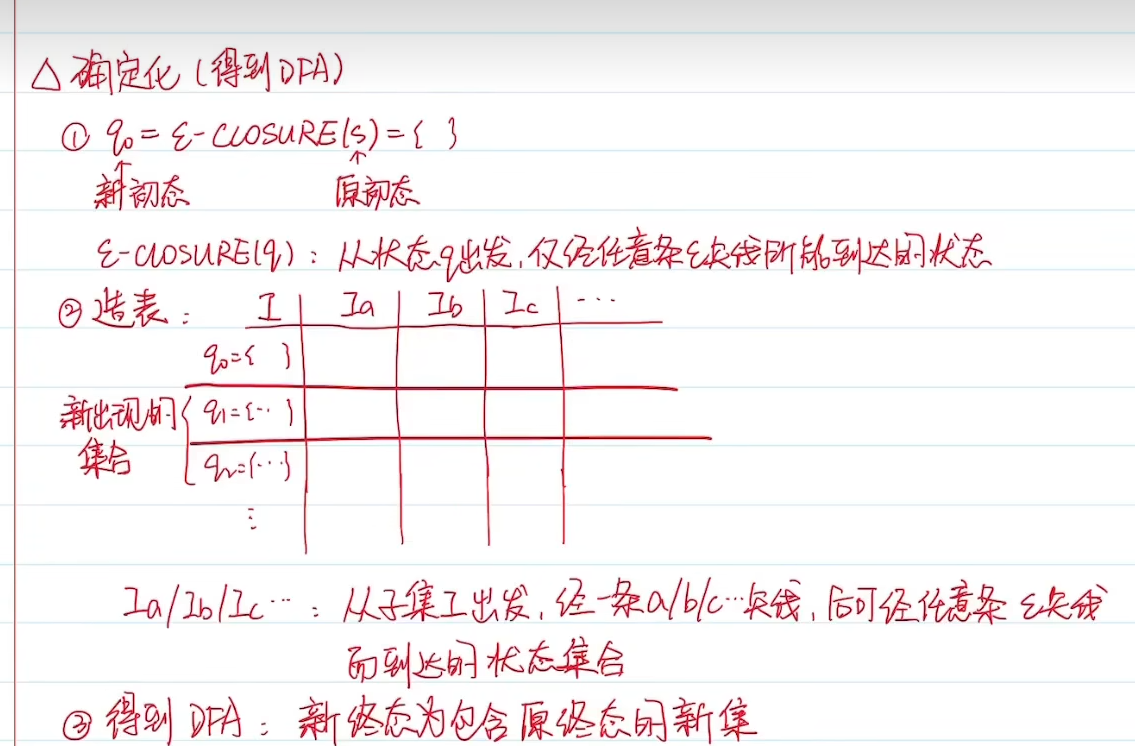 △ 确定化 (得到DFA)
① q₀ = ε-CLOSURE(S) = { }
新初态 原初态
ε-CLOSURE(q) : 从状态q出发, 仅经任意条ε矢线所能到达的状态
② 造表 : I Ia Ib Ic ...
q₀={ }
新出现的 q₁={..}
集合 q₂={...}
⋮
Ia/Ib/Ic... : 从子集I出发, 经一条a/b/c...矢线, 后可经任意条ε矢线
而到达的状态集合
③ 得到 DFA : 新终态为包含原终态的新集